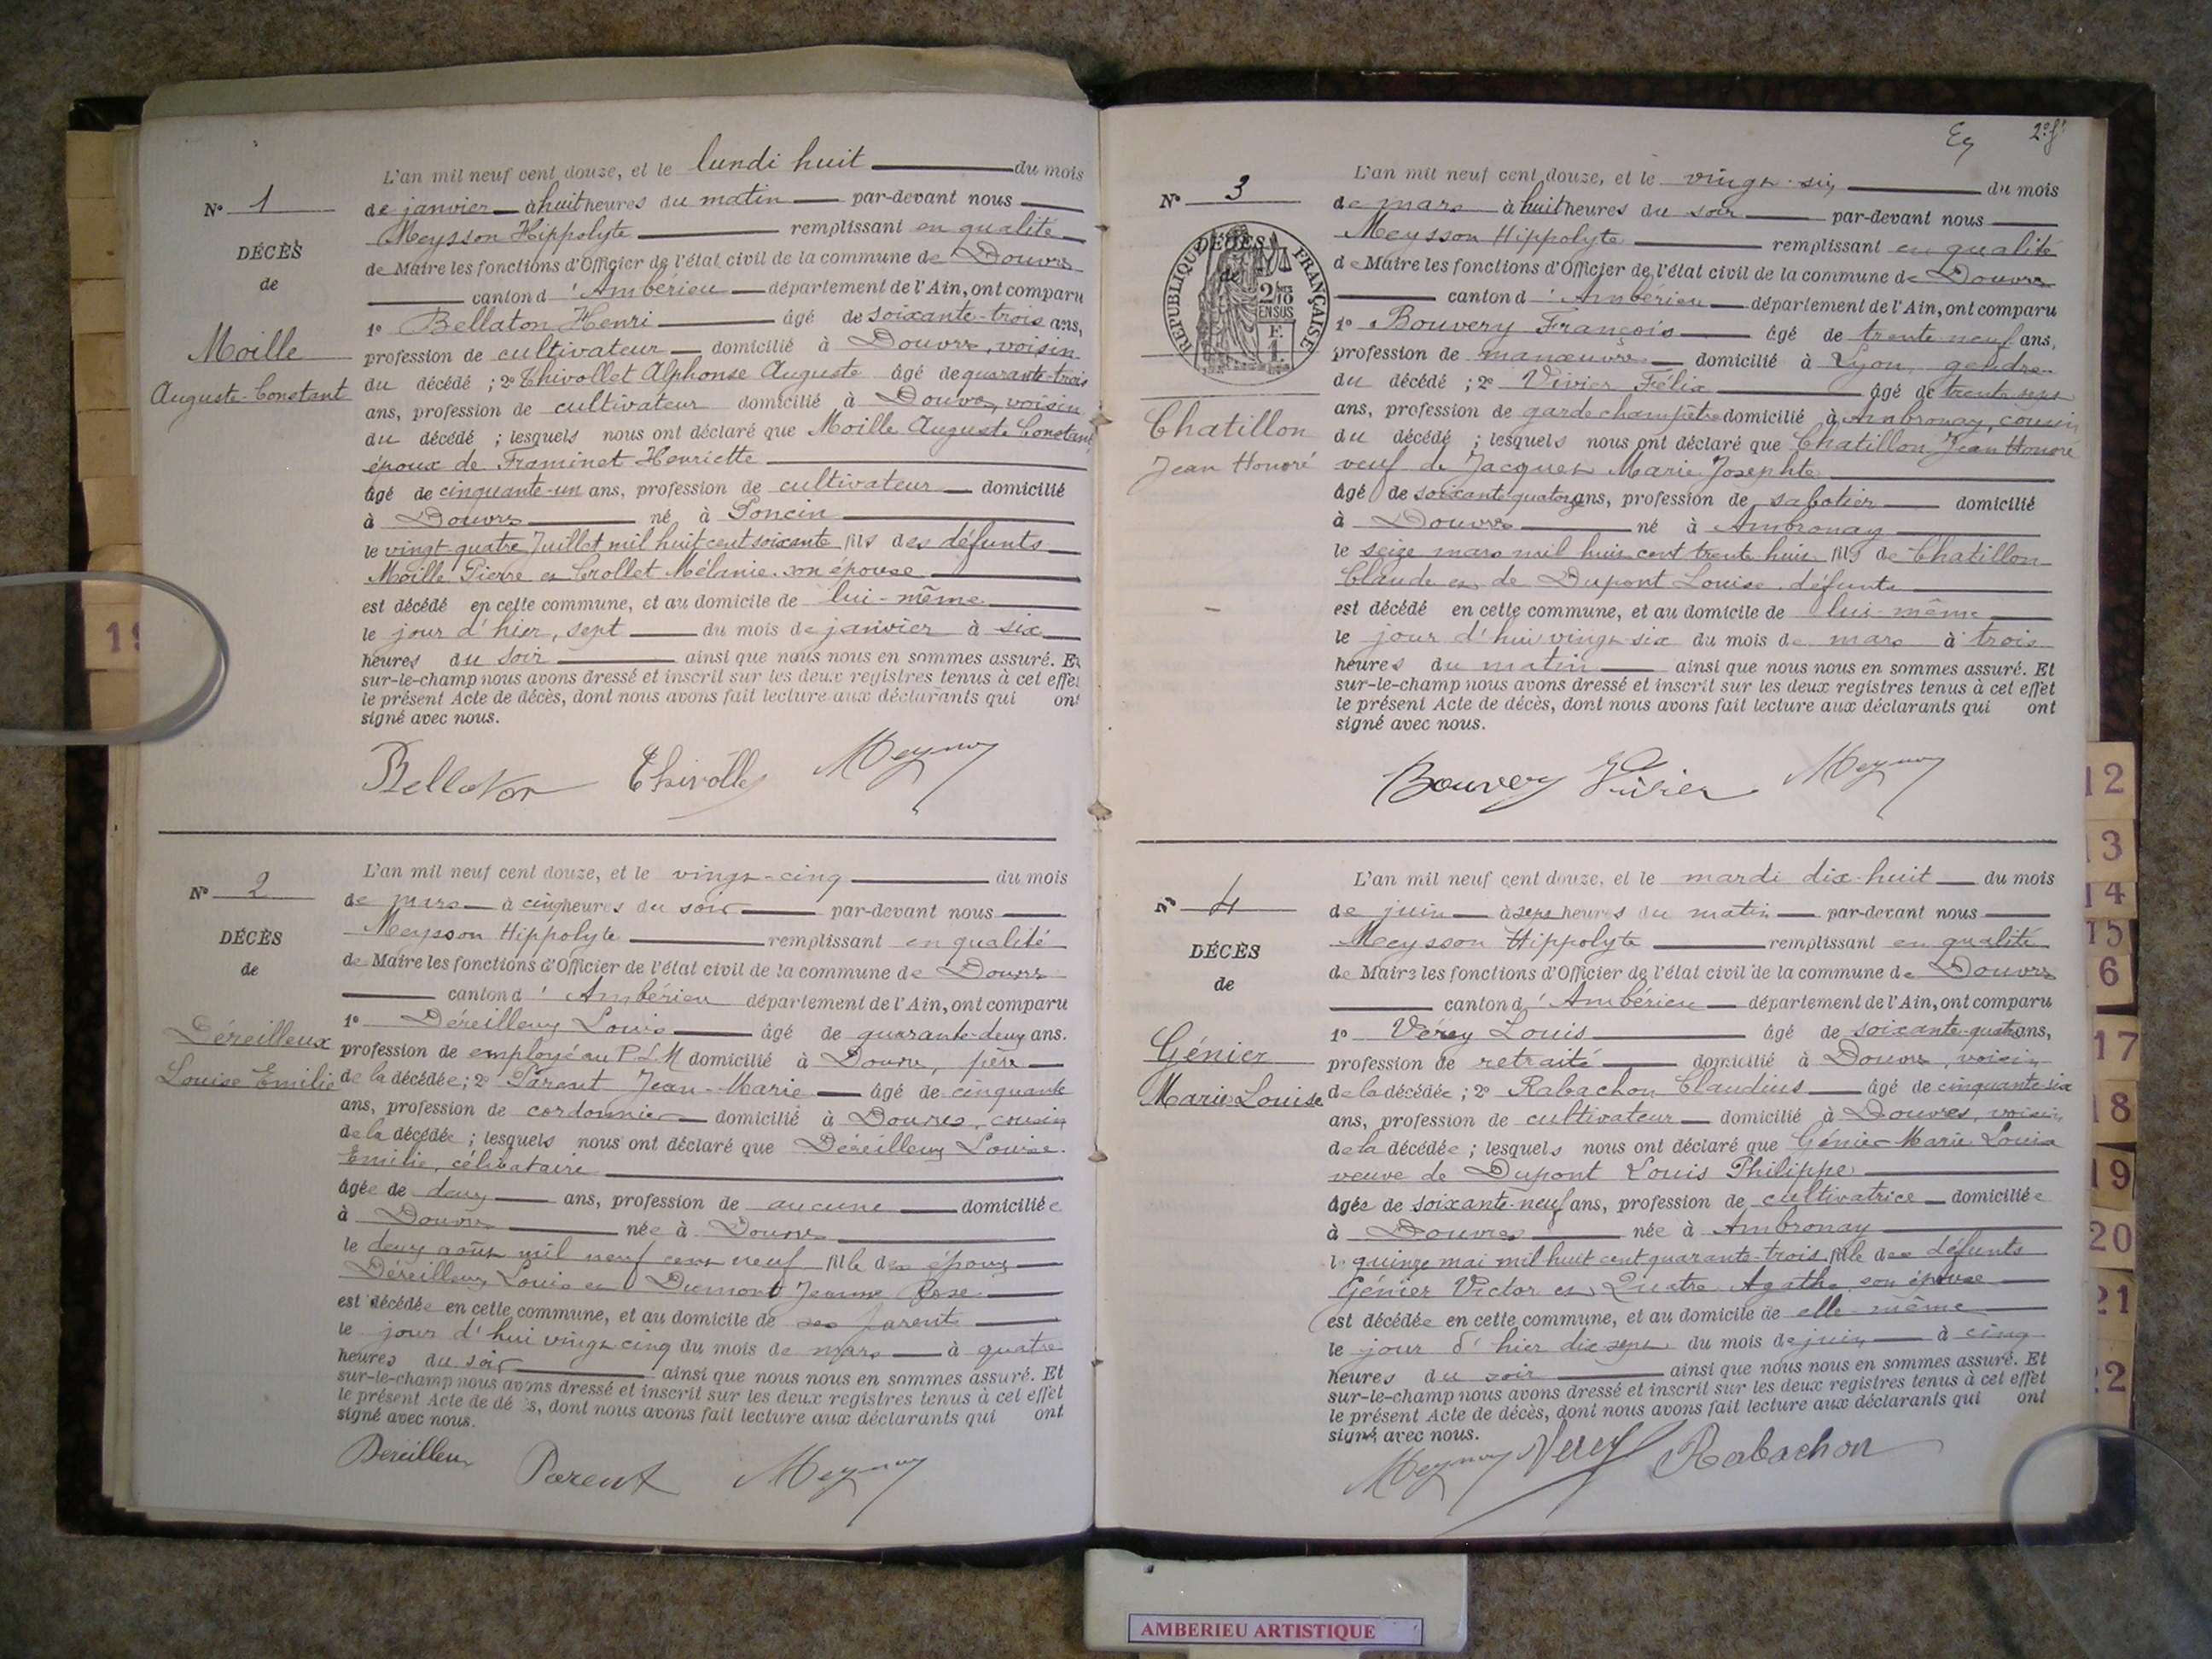 L'an mil neuf cent douze, et le lundi huit du mois
N° 1
de janvier à huit heures du matin par-devant nous
Meysson Hippolyte remplissant en qualité
DÉCÈS
de Maire les fonctions d'Officier de l'état civil de la commune de Douvres
de
canton d'Ambérieu département de l'Ain, ont comparu
1° Bellaton Henri âgé de soixante-trois ans,
Moille
profession de cultivateur domicilié à Douvres, voisin
Auguste-Constant
du décédé ; 2° Thivollet Alphonse Auguste âgé de quarante-trois
ans, profession de cultivateur domicilié à Douvres, voisin
du décédé ; lesquels nous ont déclaré que Moille Auguste Constant
époux de Framinet Henriette
âgé de cinquante-un ans, profession de cultivateur domicilié
à Douvres né à Poncin
le vingt-quatre Juillet mil huit cent soixante fils des défunts
Moille Pierre et Crollet Mélanie son épouse
est décédé en cette commune, et au domicile de lui-même
le jour d'hier, sept du mois de janvier à six
heures du soir ainsi que nous nous en sommes assuré. Et
sur-le-champ nous avons dressé et inscrit sur les deux registres tenus à cet effet
le présent Acte de décès, dont nous avons fait lecture aux déclarants qui ont
signé avec nous.
Bellaton Thivollet Meysson
L'an mil neuf cent douze, et le vingt-cinq du mois
N° 2
de mars à cinq heures du soir par-devant nous
Meysson Hippolyte remplissant en qualité
DÉCÈS
de Maire les fonctions d'Officier de l'état civil de la commune de Douvres
de
canton d'Ambérieu département de l'Ain, ont comparu
1° Déreilleux Louis âgé de quarante-deux ans.
Déreilleux
profession de employé au P L M domicilié à Douvres, père
Louise Emilie
de la décédée ; 2° Parent Jean-Marie âgé de cinquante
ans, profession de cordonnier domicilié à Douvres, cousin
de la décédée ; lesquels nous ont déclaré que Déreilleux Louise
Emilie, célibataire
âgée de deux ans, profession de aucune domiciliée
à Douvres née à Douvres
le deux août mil neuf cent neuf fille des époux
Déreilleux Louis et Dumont Jeanne Rose
est décédée en cette commune, et au domicile de ses parents
le jour d'hui vingt cinq du mois de mars à quatre
heures du soir ainsi que nous nous en sommes assuré. Et
sur-le-champ nous avons dressé et inscrit sur les deux registres tenus à cet effet
le présent Acte de dé s, dont nous avons fait lecture aux déclarants qui ont
signé avec nous.
Dereilleux Parent Meysson
2e ft
L'an mil neuf cent douze, et le vingt-six du mois
N° 3
de mars à huit heures du soir par-devant nous
Meysson Hippolyte remplissant en qualité
DÉCÈS
de
RÉPUBLIQUE FRANÇAISE
2/10 EN SUS
F. 1.
de Maire les fonctions d'Officier de l'état civil de la commune de Douvres
canton d'Ambérieu département de l'Ain, ont comparu
1° Bouvery François âgé de trente neuf ans,
profession de manœuvre domicilié à Lyon, gendre
du décédé ; 2° Vivier Félix âgé de trente sept
ans, profession de garde champêtre domicilié à Ambronay, cousin
Chatillon
du décédé ; lesquels nous ont déclaré que Chatillon Jean Honoré
Jean Honoré
veuf de Jacquet Marie Josephte
âgé de soixante quatorze ans, profession de sabotier domicilié
à Douvres né à Ambronay
le seize mars mil huit cent trente huit fils de Chatillon
Claude et de Dupont Louise défunts
est décédé en cette commune, et au domicile de lui-même
le jour d'hui vingt six du mois de mars à trois
heures du matin ainsi que nous nous en sommes assuré. Et
sur-le-champ nous avons dressé et inscrit sur les deux registres tenus à cet effet
le présent Acte de décès, dont nous avons fait lecture aux déclarants qui ont
signé avec nous.
Bouvery Vivier Meysson
L'an mil neuf cent douze, et le mardi dix-huit du mois
N° 4
de juin à sept heures du matin par-devant nous
Meysson Hippolyte remplissant en qualité
DÉCÈS
de Maire les fonctions d'Officier de l'état civil de la commune de Douvres
de
canton d'Ambérieu département de l'Ain, ont comparu
1° Vérey Louis âgé de soixante-quatre ans,
Génier
profession de retraité domicilié à Douvres, voisin
Marie Louise
de la décédée ; 2° Rabachon Claudius âgé de cinquante six
ans, profession de cultivateur domicilié à Douvres, voisin
de la décédée ; lesquels nous ont déclaré que Génier Marie Louise
veuve de Dupont Louis Philippe
âgée de soixante-neuf ans, profession de cultivatrice domiciliée
à Douvres née à Ambronay
le quinze mai mil huit cent quarante-trois fille des défunts
Génier Victor et Quatre Agathe son épouse
est décédée en cette commune, et au domicile de elle-même
le jour d'hier dix sept du mois de juin à cinq
heures du soir ainsi que nous nous en sommes assuré. Et
sur-le-champ nous avons dressé et inscrit sur les deux registres tenus à cet effet
le présent Acte de décès, dont nous avons fait lecture aux déclarants qui ont
signé avec nous.
Meysson Verey Rabachon
19
12
13
14
15
6
17
18
19
20
21
22
AMBERIEU ARTISTIQUE